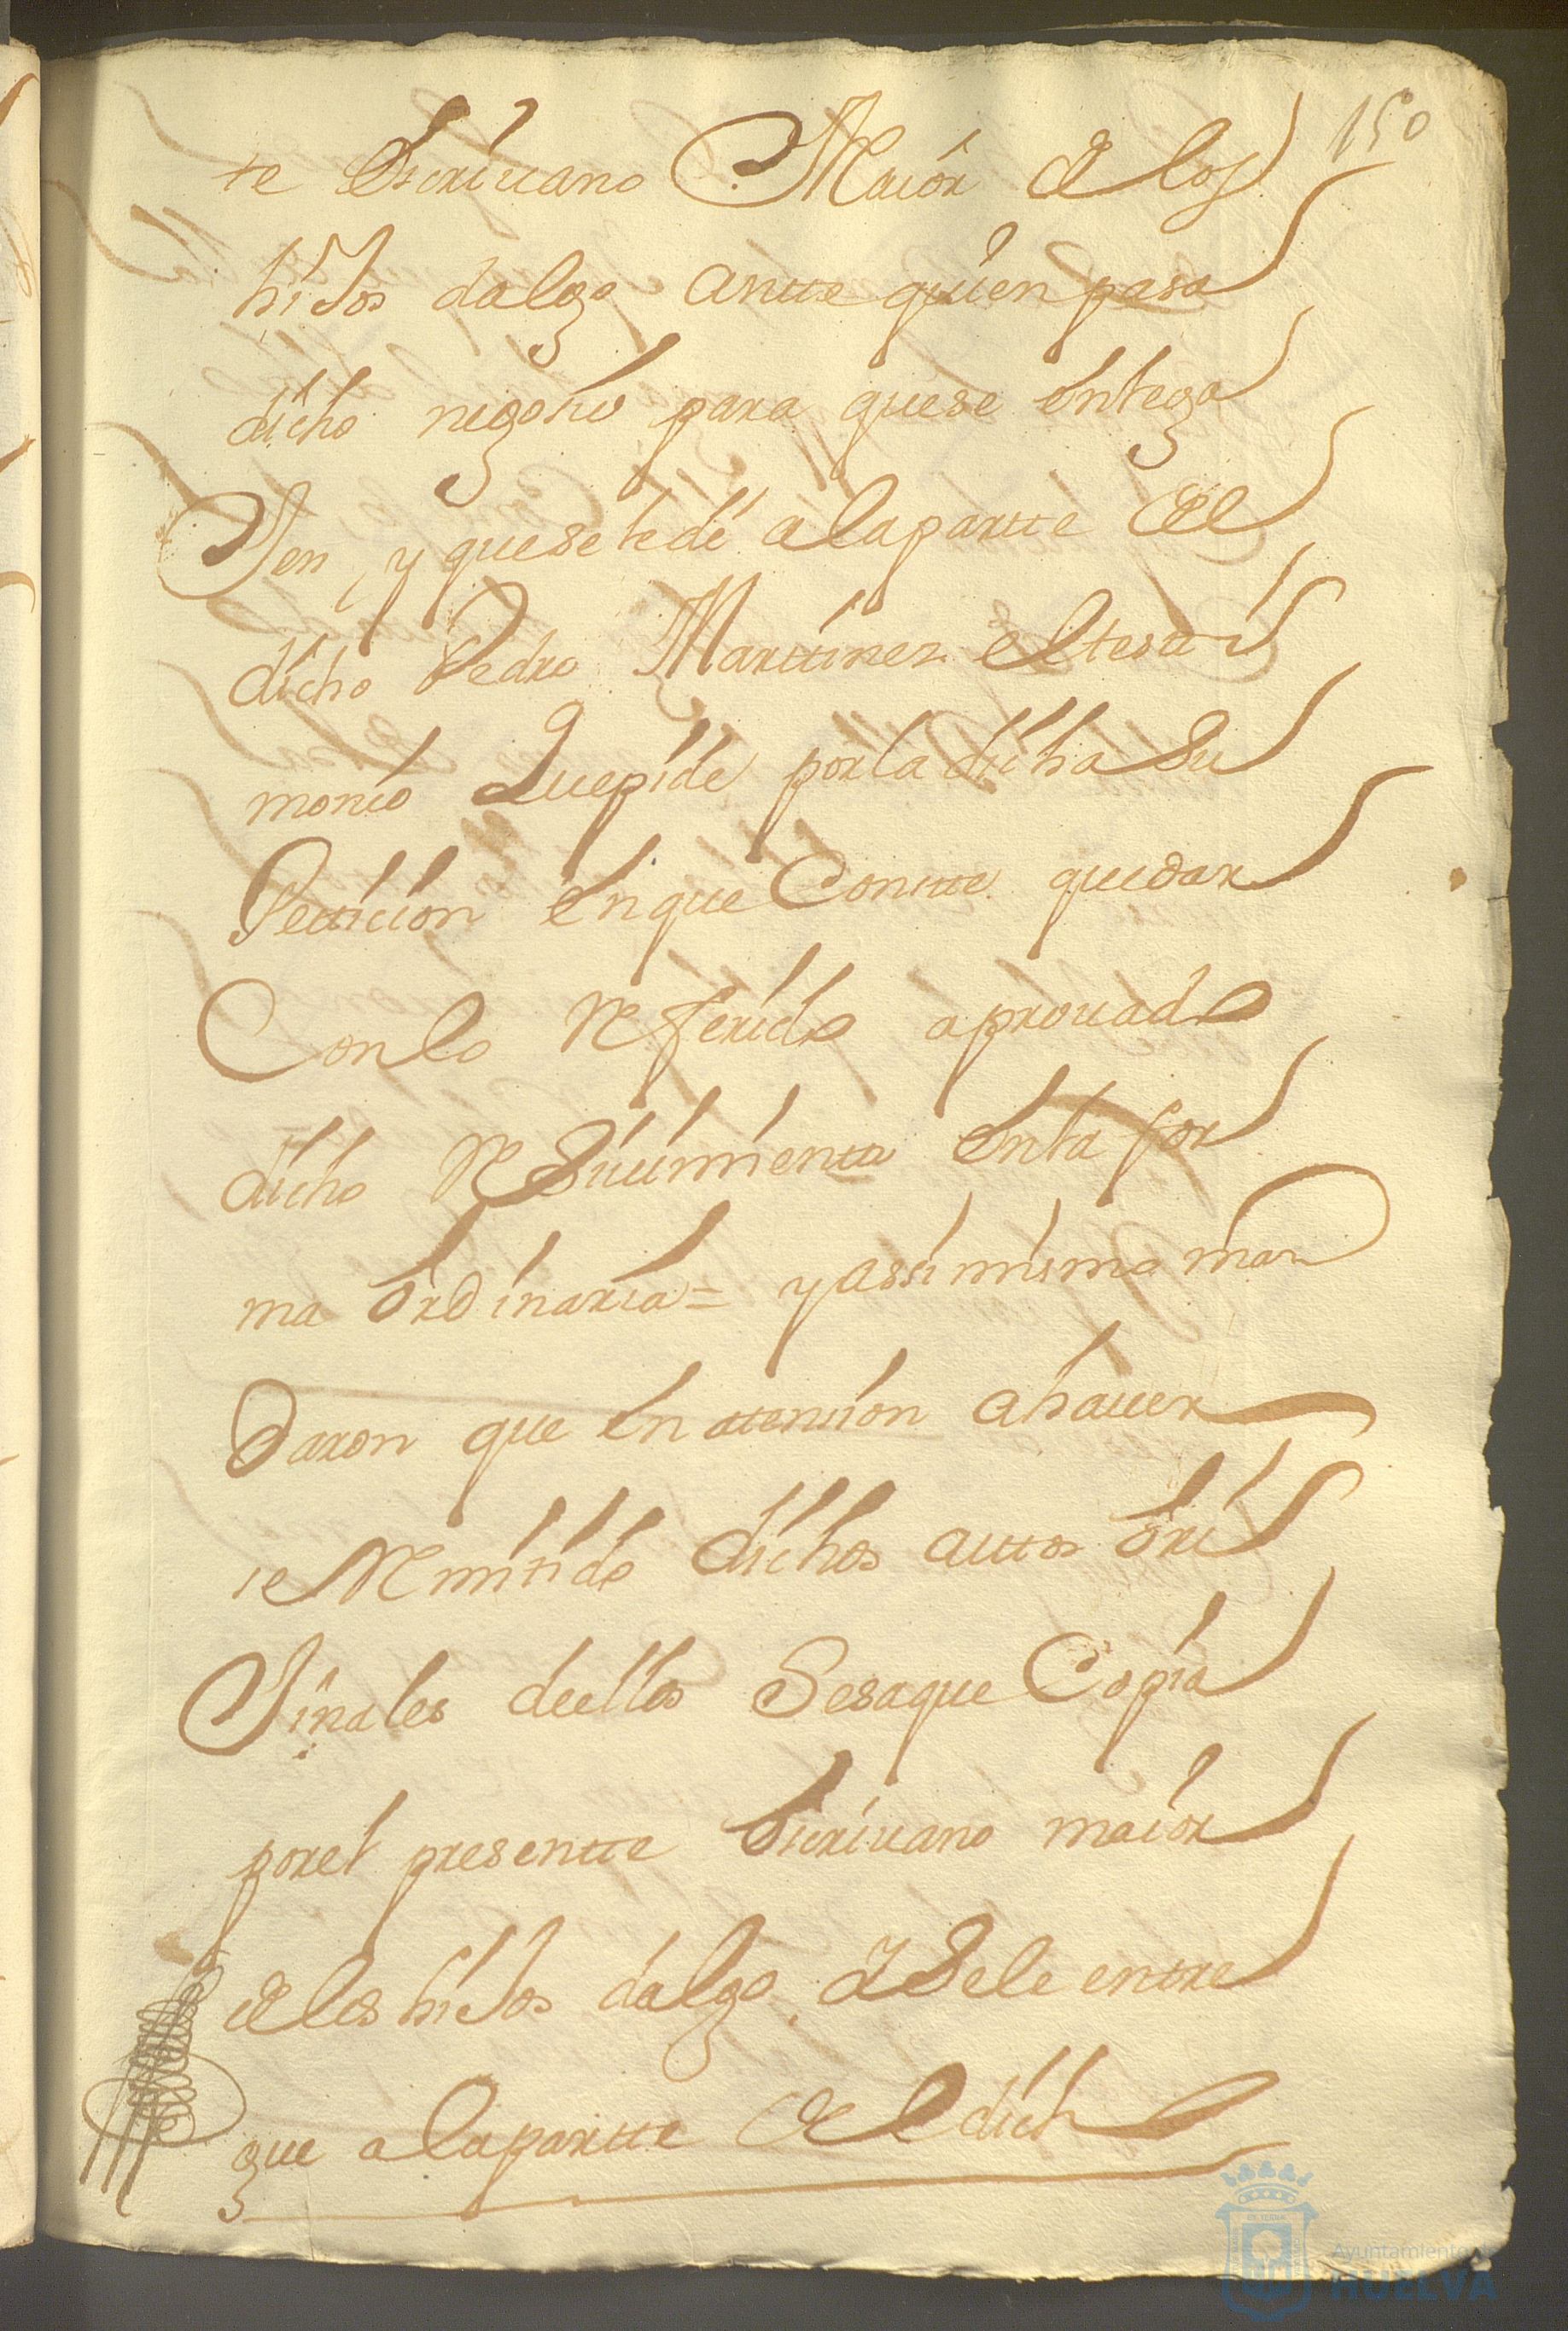 150
te escriuano Maior de los
hiJos dalgo antte quien pasa
dicho negocio para que se entega
Jen y que se le de a la partte del
dicho Pedro Marttinez el testi
monio Que pide por la dicha su
Petticion en que Contte quedar
Con lo Referido aprouado
dicho Resiuimientto en la for
ma ordinaria = y assi mismo man
daron que en attencion a hauer
se Remitido dichos auttos ori
Jinales de ellos Se saque Copia
por el presentte escriuano maior
de los hiJos dalgo Y Se le entre
gue a la partte de el dicho
Ayuntamiento de
HUELVA